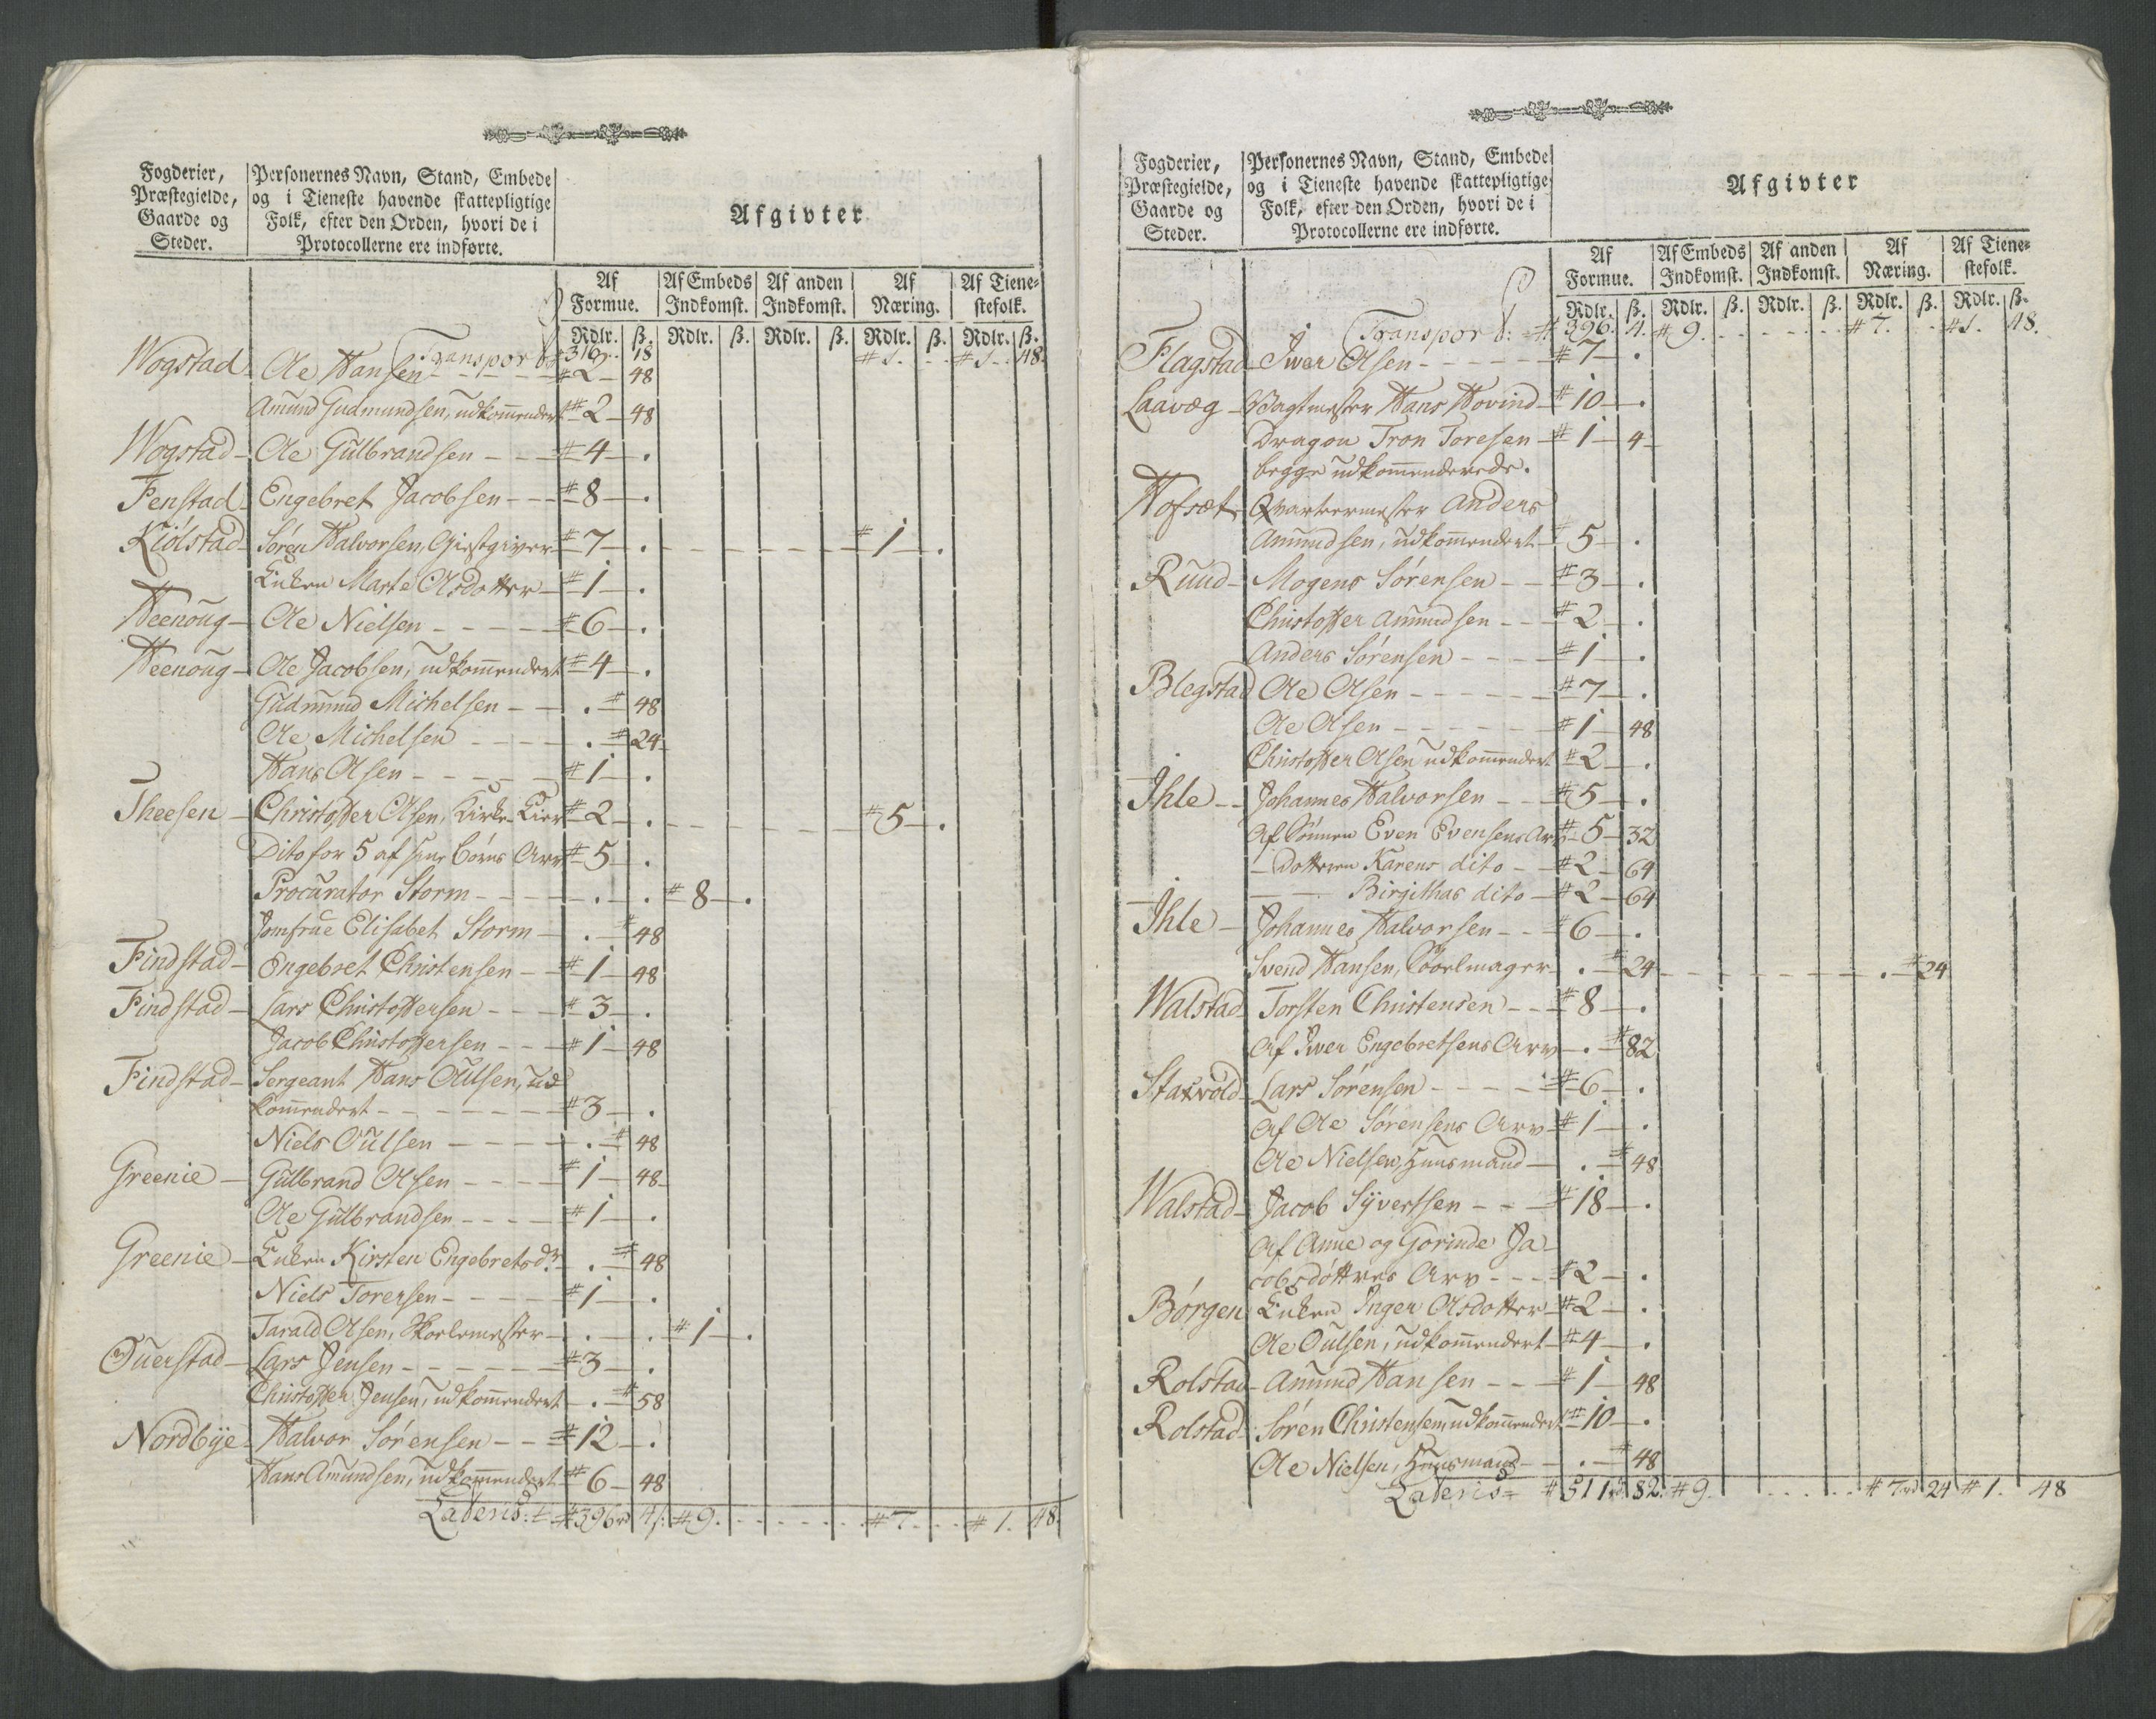 Fogderier, Præstegielde, Gaarde og Steder.
Personernes Navn, Stand, Embede og i Tieneste havende skattepligtige Folk, efter den Orden, hvori de i Protocollerne ere indførte.
Afgivter
Af Formue. Af Embeds Indkomst. Af anden Indkomst. Af Næring. Af Tienestefolk.
Rdlr. ß. Rdlr. ß. Rdlr. ß. Rdlr. ß. Rdlr. ß.
Transport # 18 # 1 # 1 48
Wogstad Ole Hansen # 2 48
Amund Gudmundsen, udkommendert # 2 48
Wogstad Ole Gulbrandsen # 4 .
Fenstad Engebret Jacobsen # 8 .
Kiölstad Søren Halvorsen, Giestgiver # 7 . # 1 .
Enken Marte Olsdotter # 1 .
Heenoug Ole Nielsen # 6 .
Heenoug Ole Jacobsen, udkommendert # 4 .
Gudmund Michelsen . # 48
Ole Michelsen . # 24
Hans Olsen # 1 .
Theesen Christoffer Olsen, Kirke-Eier # 2 . # 5 .
Dito for 5 af sine Börns Arv # 5 .
Procurator Storm . . # 8 .
Jomfrue Elisabet Storm . # 48
Findstad Engebret Christensen # 1 48
Findstad Lars Christoffersen # 3 .
Jacob Christoffersen # 1 48
Findstad Sergeant Hans Oulsen, ud
kommendert # 3 .
Niels Oulsen . # 48
Greenie Gulbrand Olsen # 1 48
Ole Gulbrandsen # 1 .
Greenie Enken Kirsten Engebretsdr . # 48
Niels Toresen # 1 .
Tarald Olsen, Skolemester . . # 1 .
Ouerstad Lars Jensen # 3 .
Christoffer Jensen, udkommendert . # 58
Nordbÿe Halvor Sørensen # 12 .
Hans Amundsen, udkommendert # 6 48
Lateris # 396 rd 4 ß # 9 # 7 # 1. 48
Fogderier, Præstegielde, Gaarde og Steder.
Personernes Navn, Stand, Embede og i Tieneste havende skattepligtige Folk, efter den Orden, hvori de i Protocollerne ere indførte.
Afgivter
Af Formue. Af Embeds Indkomst. Af anden Indkomst. Af Næring. Af Tienestefolk.
Rdlr. ß. Rdlr. ß. Rdlr. ß. Rdlr. ß. Rdlr. ß.
Transport # 396. 4. # 9. # 7. # 1. 48.
Flagstad Iver Olsen # 7 .
Laavæg Vagtmester Hans Hovind # 10 .
Dragon Tron Toresen # 1 4
begge udkommenderede.
Hofsæt Qvarteermester Anders
Amundsen, udkommendert # 5 .
Ruud Mogens Sørensen # 3 .
Christoffer Amundsen # 2 .
Anders Sørensen # 1 .
Blegstad Ole Olsen # 7 .
Ole Olsen # 1 48
Christoffer Olsen udkommendert # 2 .
Ihle Johannes Halvorsen # 5 .
Af Sönnen Even Evensens Arv # 5 32
Dotteren Karens dito # 2 64
Birgithas dito # 2 64
Ihle Johannes Halvorsen # 6 .
Svend Hansen, . # 24 . # 24
Walstad Torsten Christensen # 8 .
Af Iver Engebretsens Arv . # 82
Starvold Lars Sörensen # 6 .
Af Ole Sørensens Arv # 1 .
Ole Nielsen, Huusmand . # 48
Walstad Jacob Sÿvertsen # 18 .
Af Anne og Gorinde Ja-
cobsdöttres Arv # 2 .
Börgen Enken Inger Olsdotter # 2 .
Ole Oulsen, udkommendert # 4 .
Rolstad Amund Hansen # 1 48
Rolstad Søren Christensen, udkommendert # 10 .
Ole Nielsen, Huusmand . # 48
Lateris # 511 rd 82. # 9. # 7 rd 24 # 1. 48